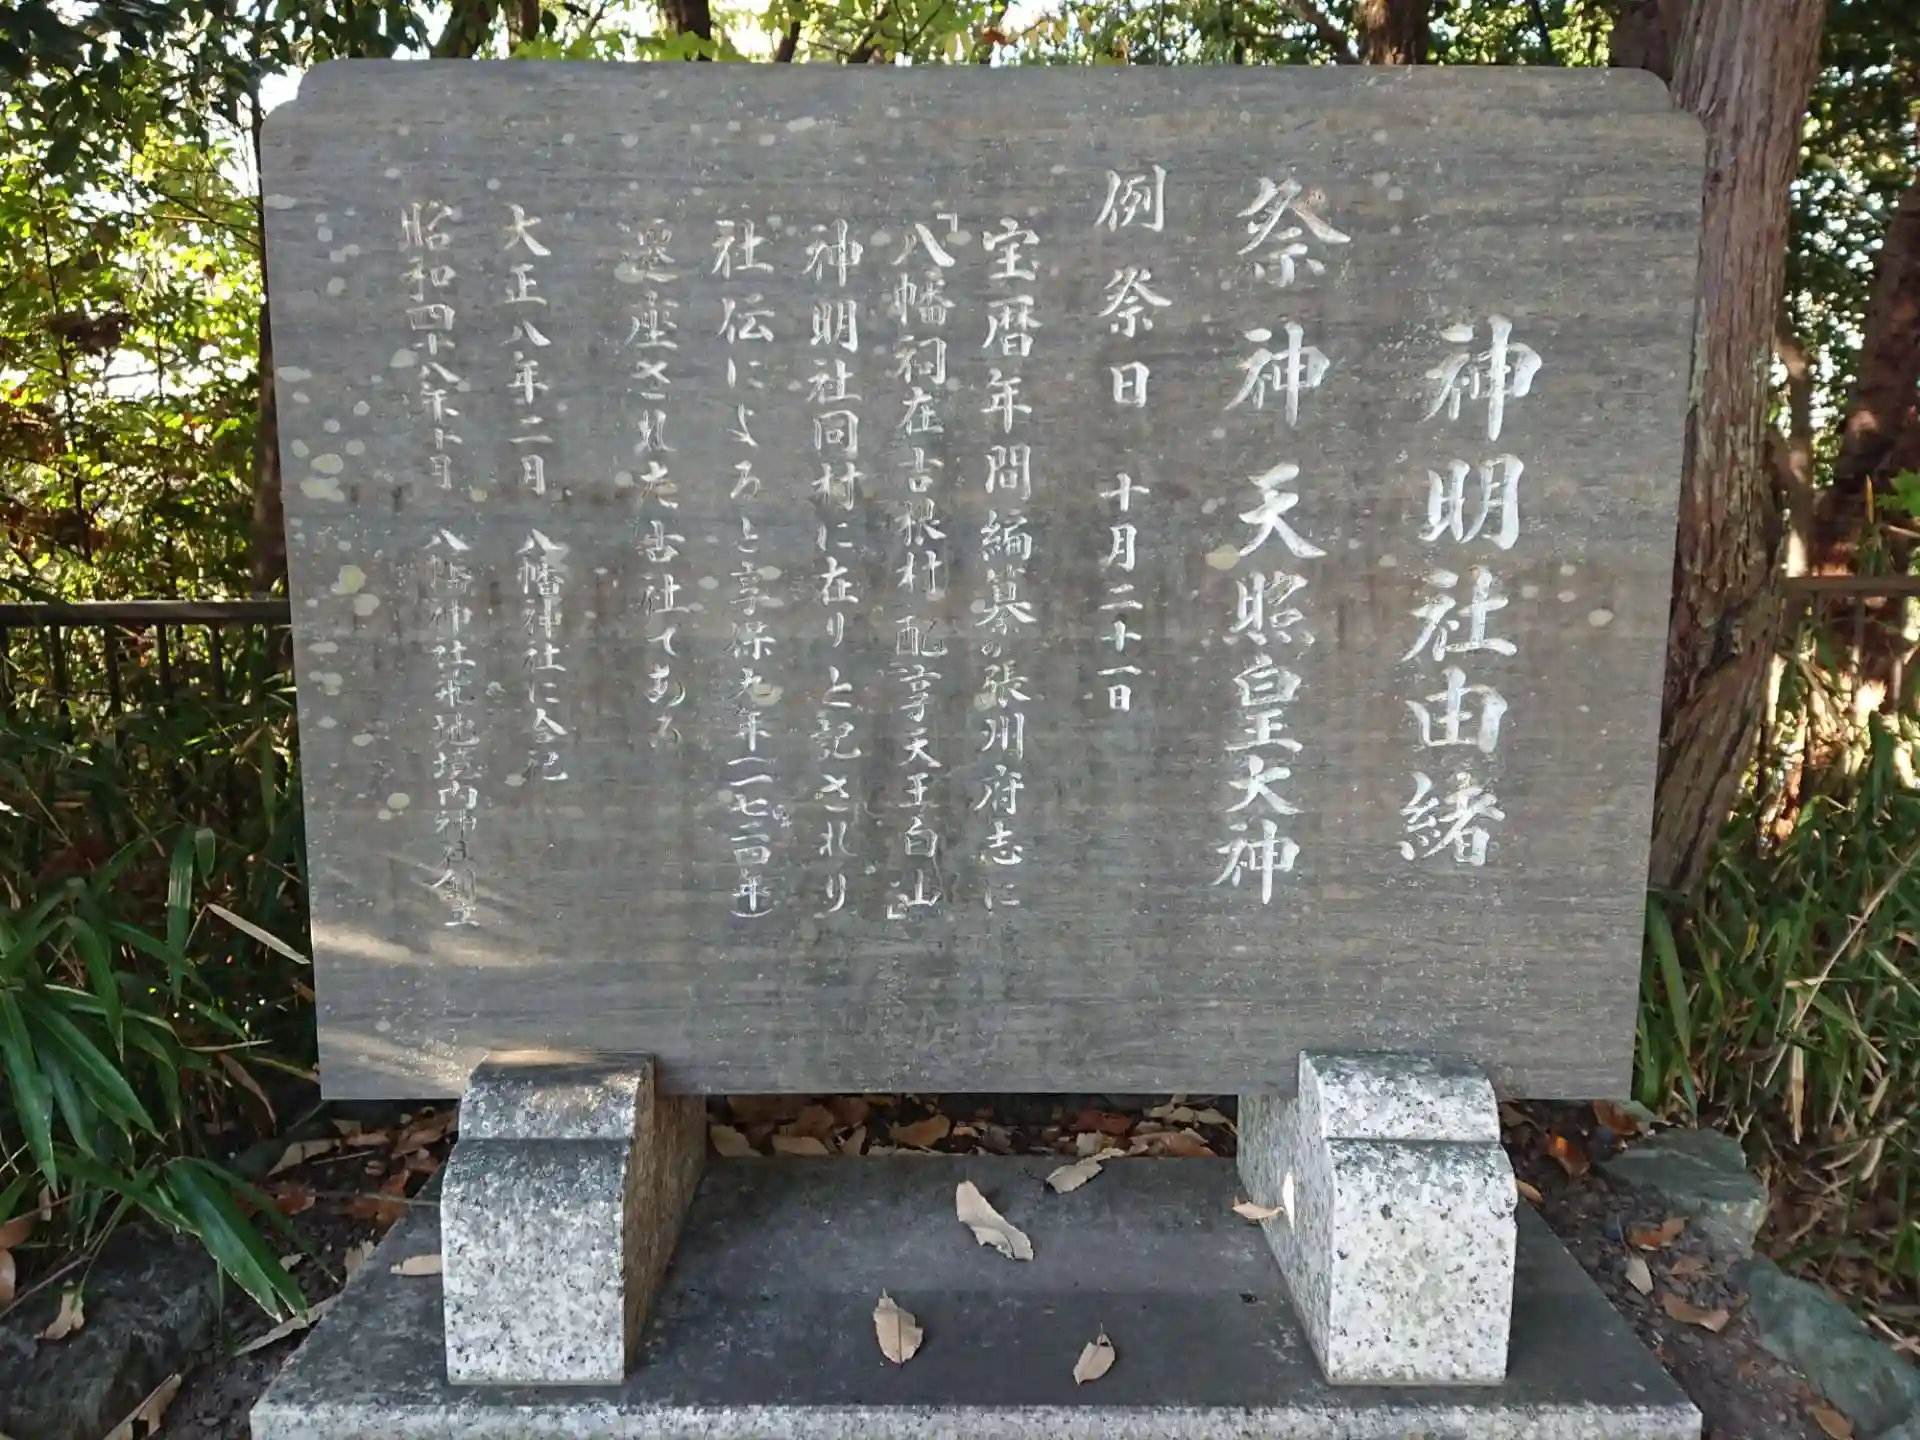 神明社由緒
祭神 天照皇大神
例祭日 十月二十一日
宝暦年間編纂の張州府志に
「八幡祠在古根村配享天王白山」
神明社同村に在りと記されり
社伝によると享保九年(一七二四年)
遷座された古社てある
大正八年二月 八幡神社に合祀
昭和四十八年十月 八幡神社飛地境内神社創立